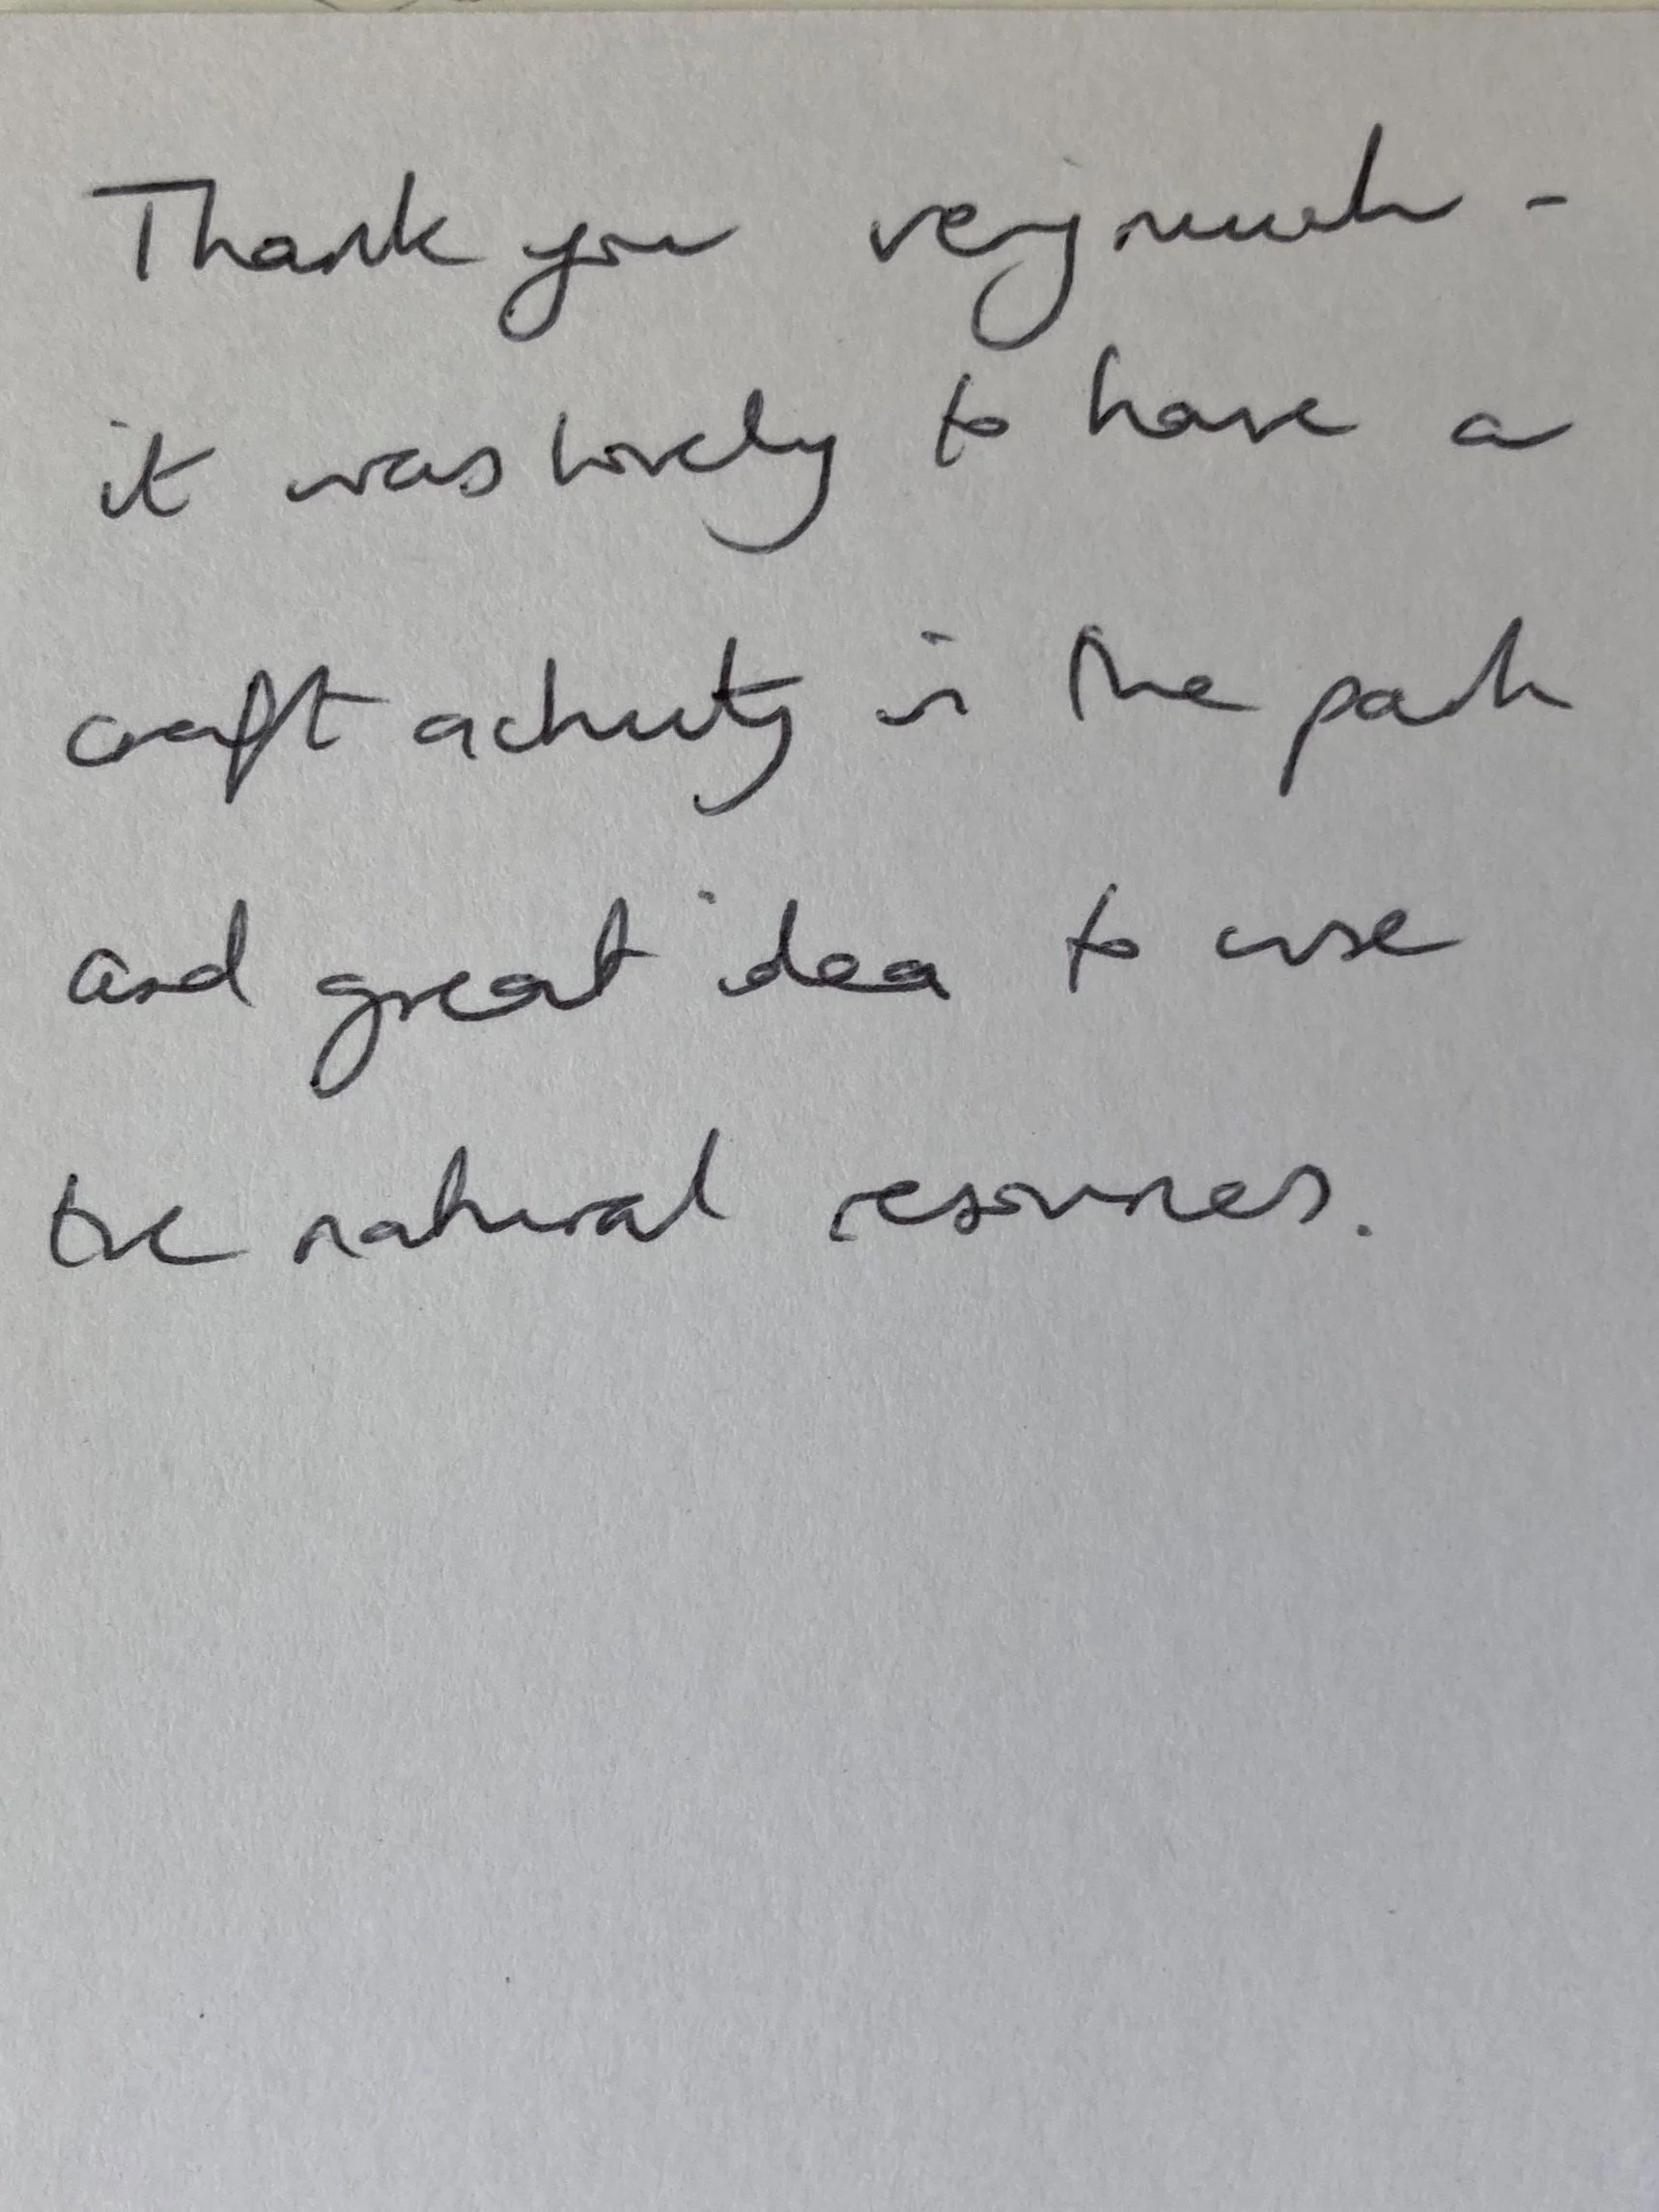 Thank you very much -
it was lovely to have a
craft activity in the park
and great idea to use
the natural resources.